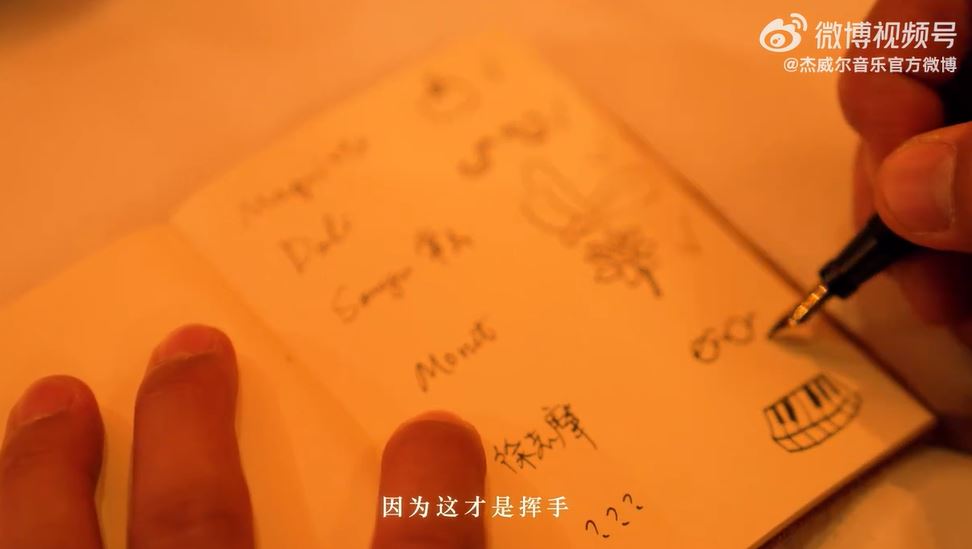 微博视频号
@杰威尔音乐官方微博
Magritte
Dali
Sanyu
Monet
徐志摩
???
因为这才是挥手